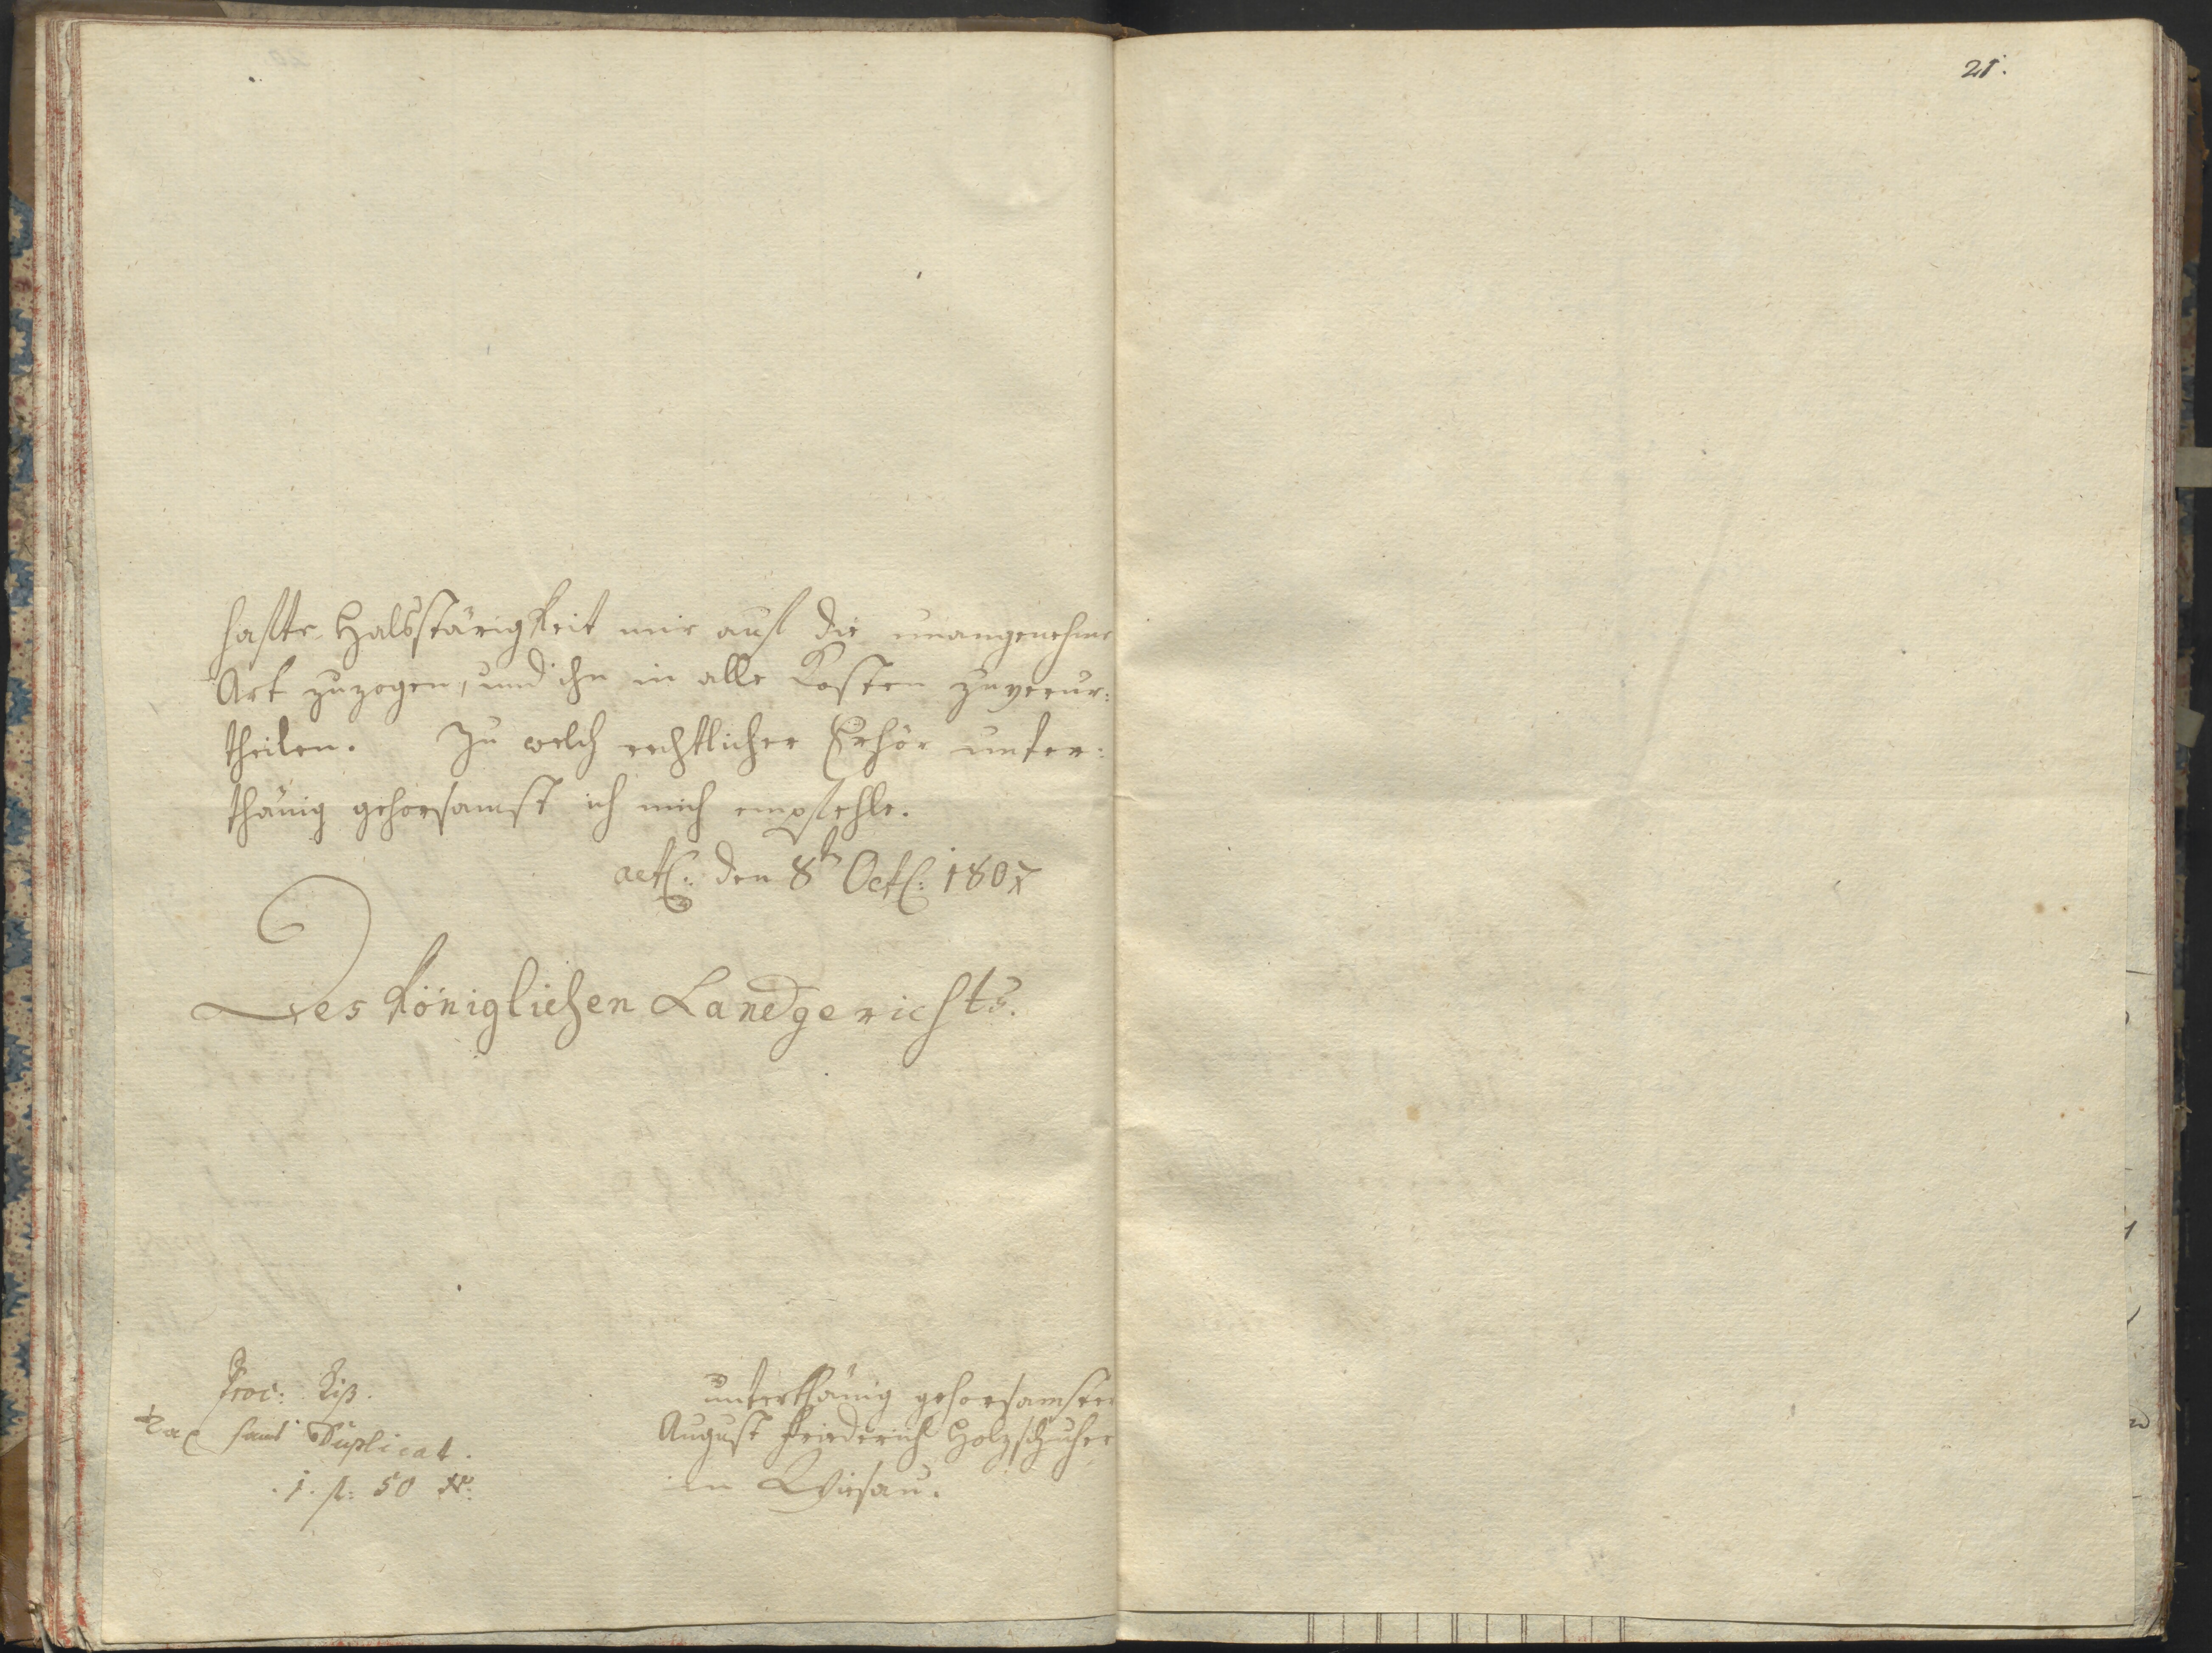 21.
hafte Halsstärigkeit mir auf die unangenehme
Art zuzogen, und ihn in alle Kosten zuverur:
theilen. Zu welch rechtlicher Erhör unter:
thänig gehorsamst ich mich empfehle.
act: den 8t Oct: 1807
Des königlichen Landgerichts.
Proc: Kiß.
Tax samt Duplicat.
1. fl: 50 xr:
unterthänig gehorsamster
August Friederich Holzschuher
in Wiesau.